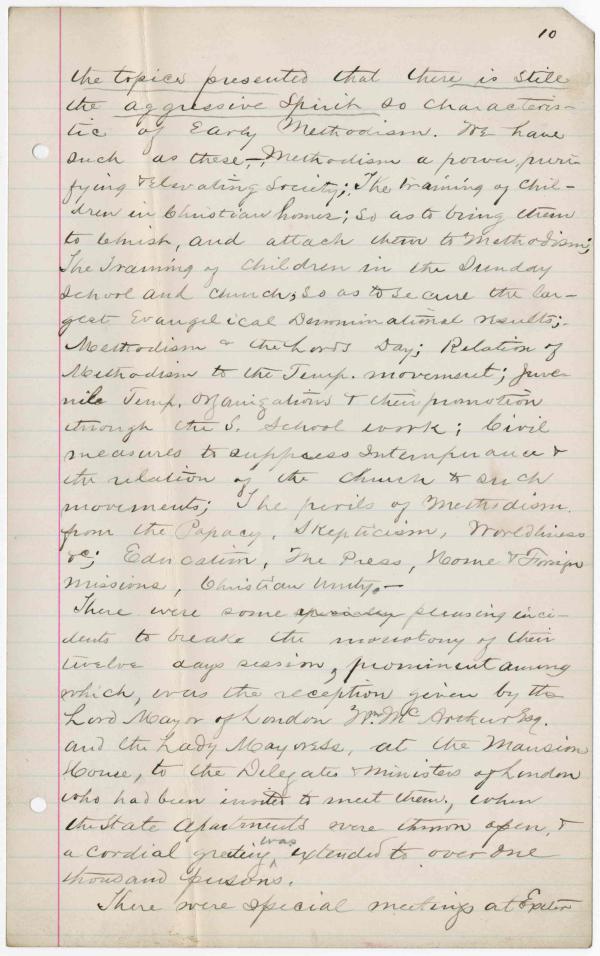 10
the topics presented that there is still
the aggressive Spirit so characteris-
tic of Early Methodism. We have
such as these,- Methodism a power, puri-
fying & Elevating Society; The training of Chil-
dren in Christian homes; So as to bring them
to Christ, and attach them to Methodism;
The Training of Children in the Sunday
School and Church; So as to secure the lar-
gest Evangelical Denominational results;-
Methodism & the Lords Day; Relation of
Methodism to the Temp. movement; Juve-
nile Temp. organizations & their promotion
through the S. School work; Civil
measures to suppress Intemperance &
the relation of the Church to such
movements; The perils of Methodism
from the Papacy, Skepticism, Worldliness
&c; Education, The Press, Home & Foreign
Missions, Christian Unity.-
There were some pleasing inci-
dents to breake the monotony of their
twelve days session, prominent among
which, was the reception given by the
Lord Mayor of London Wm. Mc Arthur Esq.
and the Lady Mayoress, at the Mansion
House, to the Delegates & Ministers of London
who had been invited to meet them, when
the State Apartments were thrown open, &
a cordial greeting was extended to over one
thousand persons.
There were special meetings at Exeter